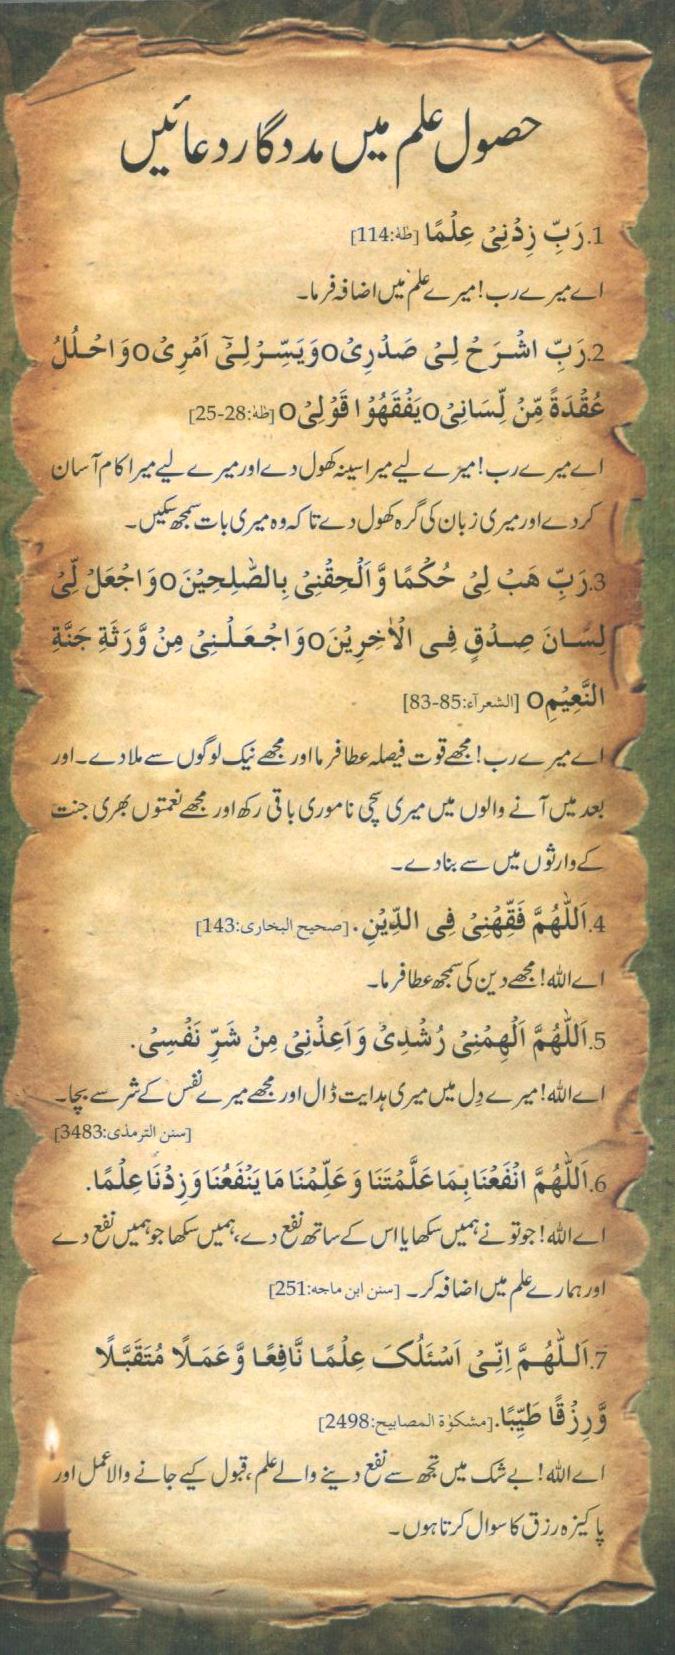 حصول علم میں مددگار دعائیں
1.رَبِّ زِدْنِیْ عِلْمًا [طٰهٰ:114]
اے میرے رب! میرے علم میں اضافہ فرما۔
2.رَبِّ اشْرَحْ لِیْ صَدْرِیْoوَیَسِّرْلِیْٓ اَمْرِیْoوَاحْلُلْ
عُقْدَةً مِّنْ لِّسَانِیْoیَفْقَهُوْا قَوْلِیْo [طٰهٰ:28-25]
اے میرے رب! میرے لیے میرا سینہ کھول دے اور میرے لیے میرا کام آسان
کر دے اور میری زبان کی گرہ کھول دے تا کہ وہ میری بات سمجھ سکیں۔
3.رَبِّ هَبْ لِیْ حُکْمًا وَّاَلْحِقْنِیْ بِالصّٰلِحِیْنَoوَاجْعَلْ لِّیْ
لِسَانَ صِدْقٍ فِی الْاٰخِرِیْنَoوَاجْعَلْنِیْ مِنْ وَّرَثَةِ جَنَّةِ
النَّعِیْمِo [الشعرآء:85-83]
اے میرے رب! مجھے قوت فیصلہ عطا فرما اور مجھے نیک لوگوں سے ملا دے۔ اور
بعد میں آنے والوں میں میری سچی ناموری باقی رکھ اور مجھے نعمتوں بھری جنت
کے وارثوں میں سے بنا دے۔
4.اَللّٰهُمَّ فَقِّهْنِیْ فِی الدِّیْنِ. [صحیح البخاری:143]
اے اللہ! مجھے دین کی سمجھ عطا فرما۔
5.اَللّٰهُمَّ اَلْهِمْنِیْ رُشْدِیْ وَاَعِذْنِیْ مِنْ شَرِّ نَفْسِیْ.
اے اللہ! میرے دِل میں میری ہدایت ڈال اور مجھے میرے نفس کے شر سے بچا۔
[سنن الترمذی:3483]
6.اَللّٰهُمَّ انْفَعْنَا بِمَا عَلَّمْتَنَا وَعَلِّمْنَا مَا یَنْفَعُنَا وَزِدْنَا عِلْمًا.
اے اللہ! جو تو نے ہمیں سکھایا اس کے ساتھ نفع دے، ہمیں سکھا جو ہمیں نفع دے
اور ہمارے علم میں اضافہ کر۔ [سنن ابن ماجه:251]
7.اَللّٰهُمَّ اِنِّیْ اَسْئَلُکَ عِلْمًا نَّافِعًا وَّعَمَلًا مُتَقَبَّلًا
وَّرِزْقًا طَیِّبًا. [مشکوٰة المصابیح:2498]
اے اللہ! بے شک میں تجھ سے نفع دینے والے علم، قبول کیے جانے والا عمل اور
پاکیزہ رزق کا سوال کرتا ہوں۔